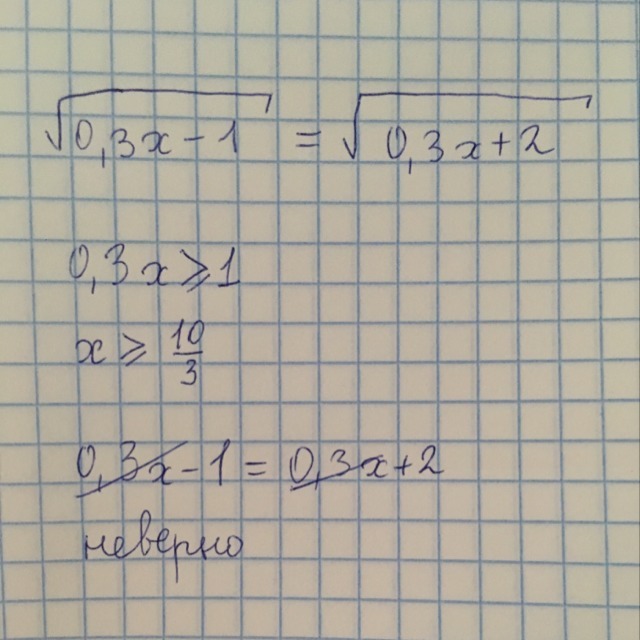 √0,3x-1 = √0,3x+2
0,3x⩾1
x ⩾ 10/3
0,3x-1 = 0,3x+2
неверно